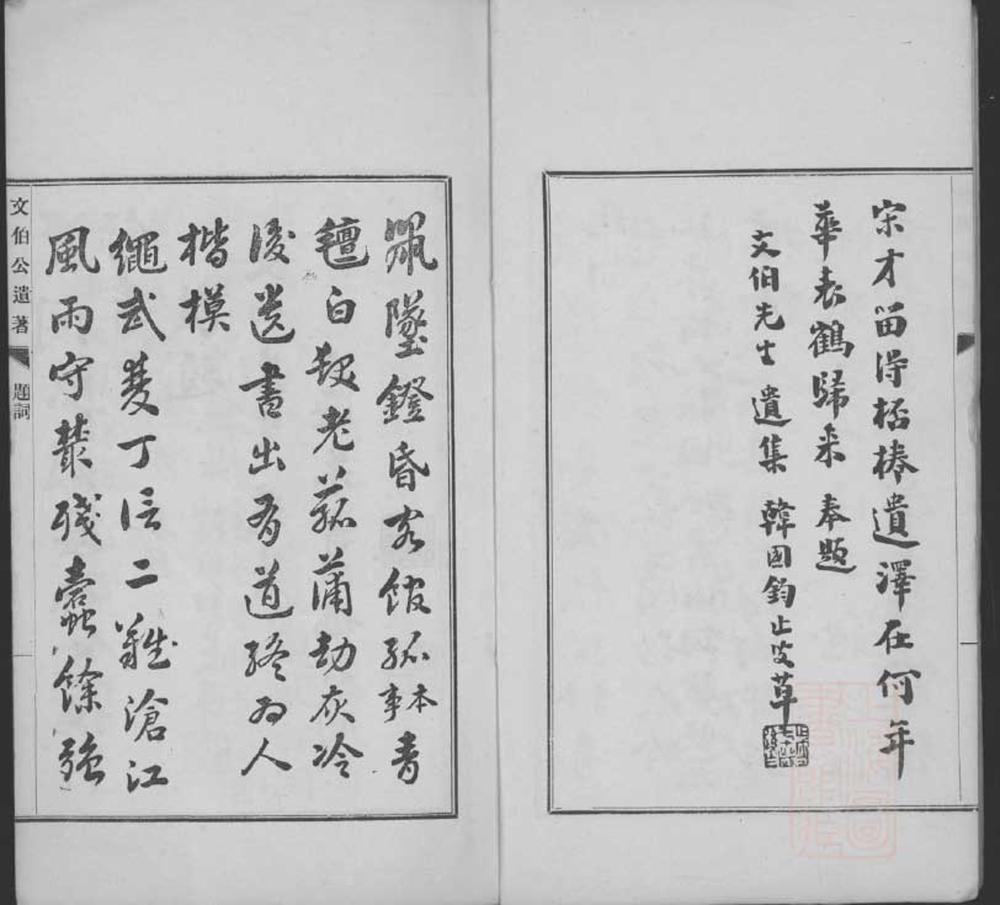 宋才留得桮棬遺澤在何年
華表鶴歸來 奉題
文伯先生遺集 韓國鈞止叟草
墜鐙昏客館孤本事青
氈白髮老菰蒲劫灰冷
後遺書出有道終為人
楷模
繩武雙丁信二難滄江
風雨守叢殘蠹餘強
文伯公遺著
題詞